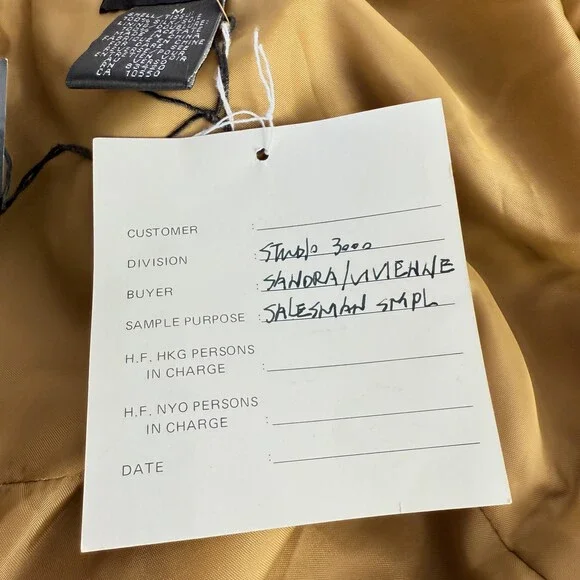 M
CUSTOMER
DIVISION : STUDIO 3000
BUYER : SANDRA/VIVIENNE
SAMPLE PURPOSE : SALESMAN SMPL
H.F. HKG PERSONS
IN CHARGE :
H.F. NYO PERSONS
IN CHARGE :
DATE :